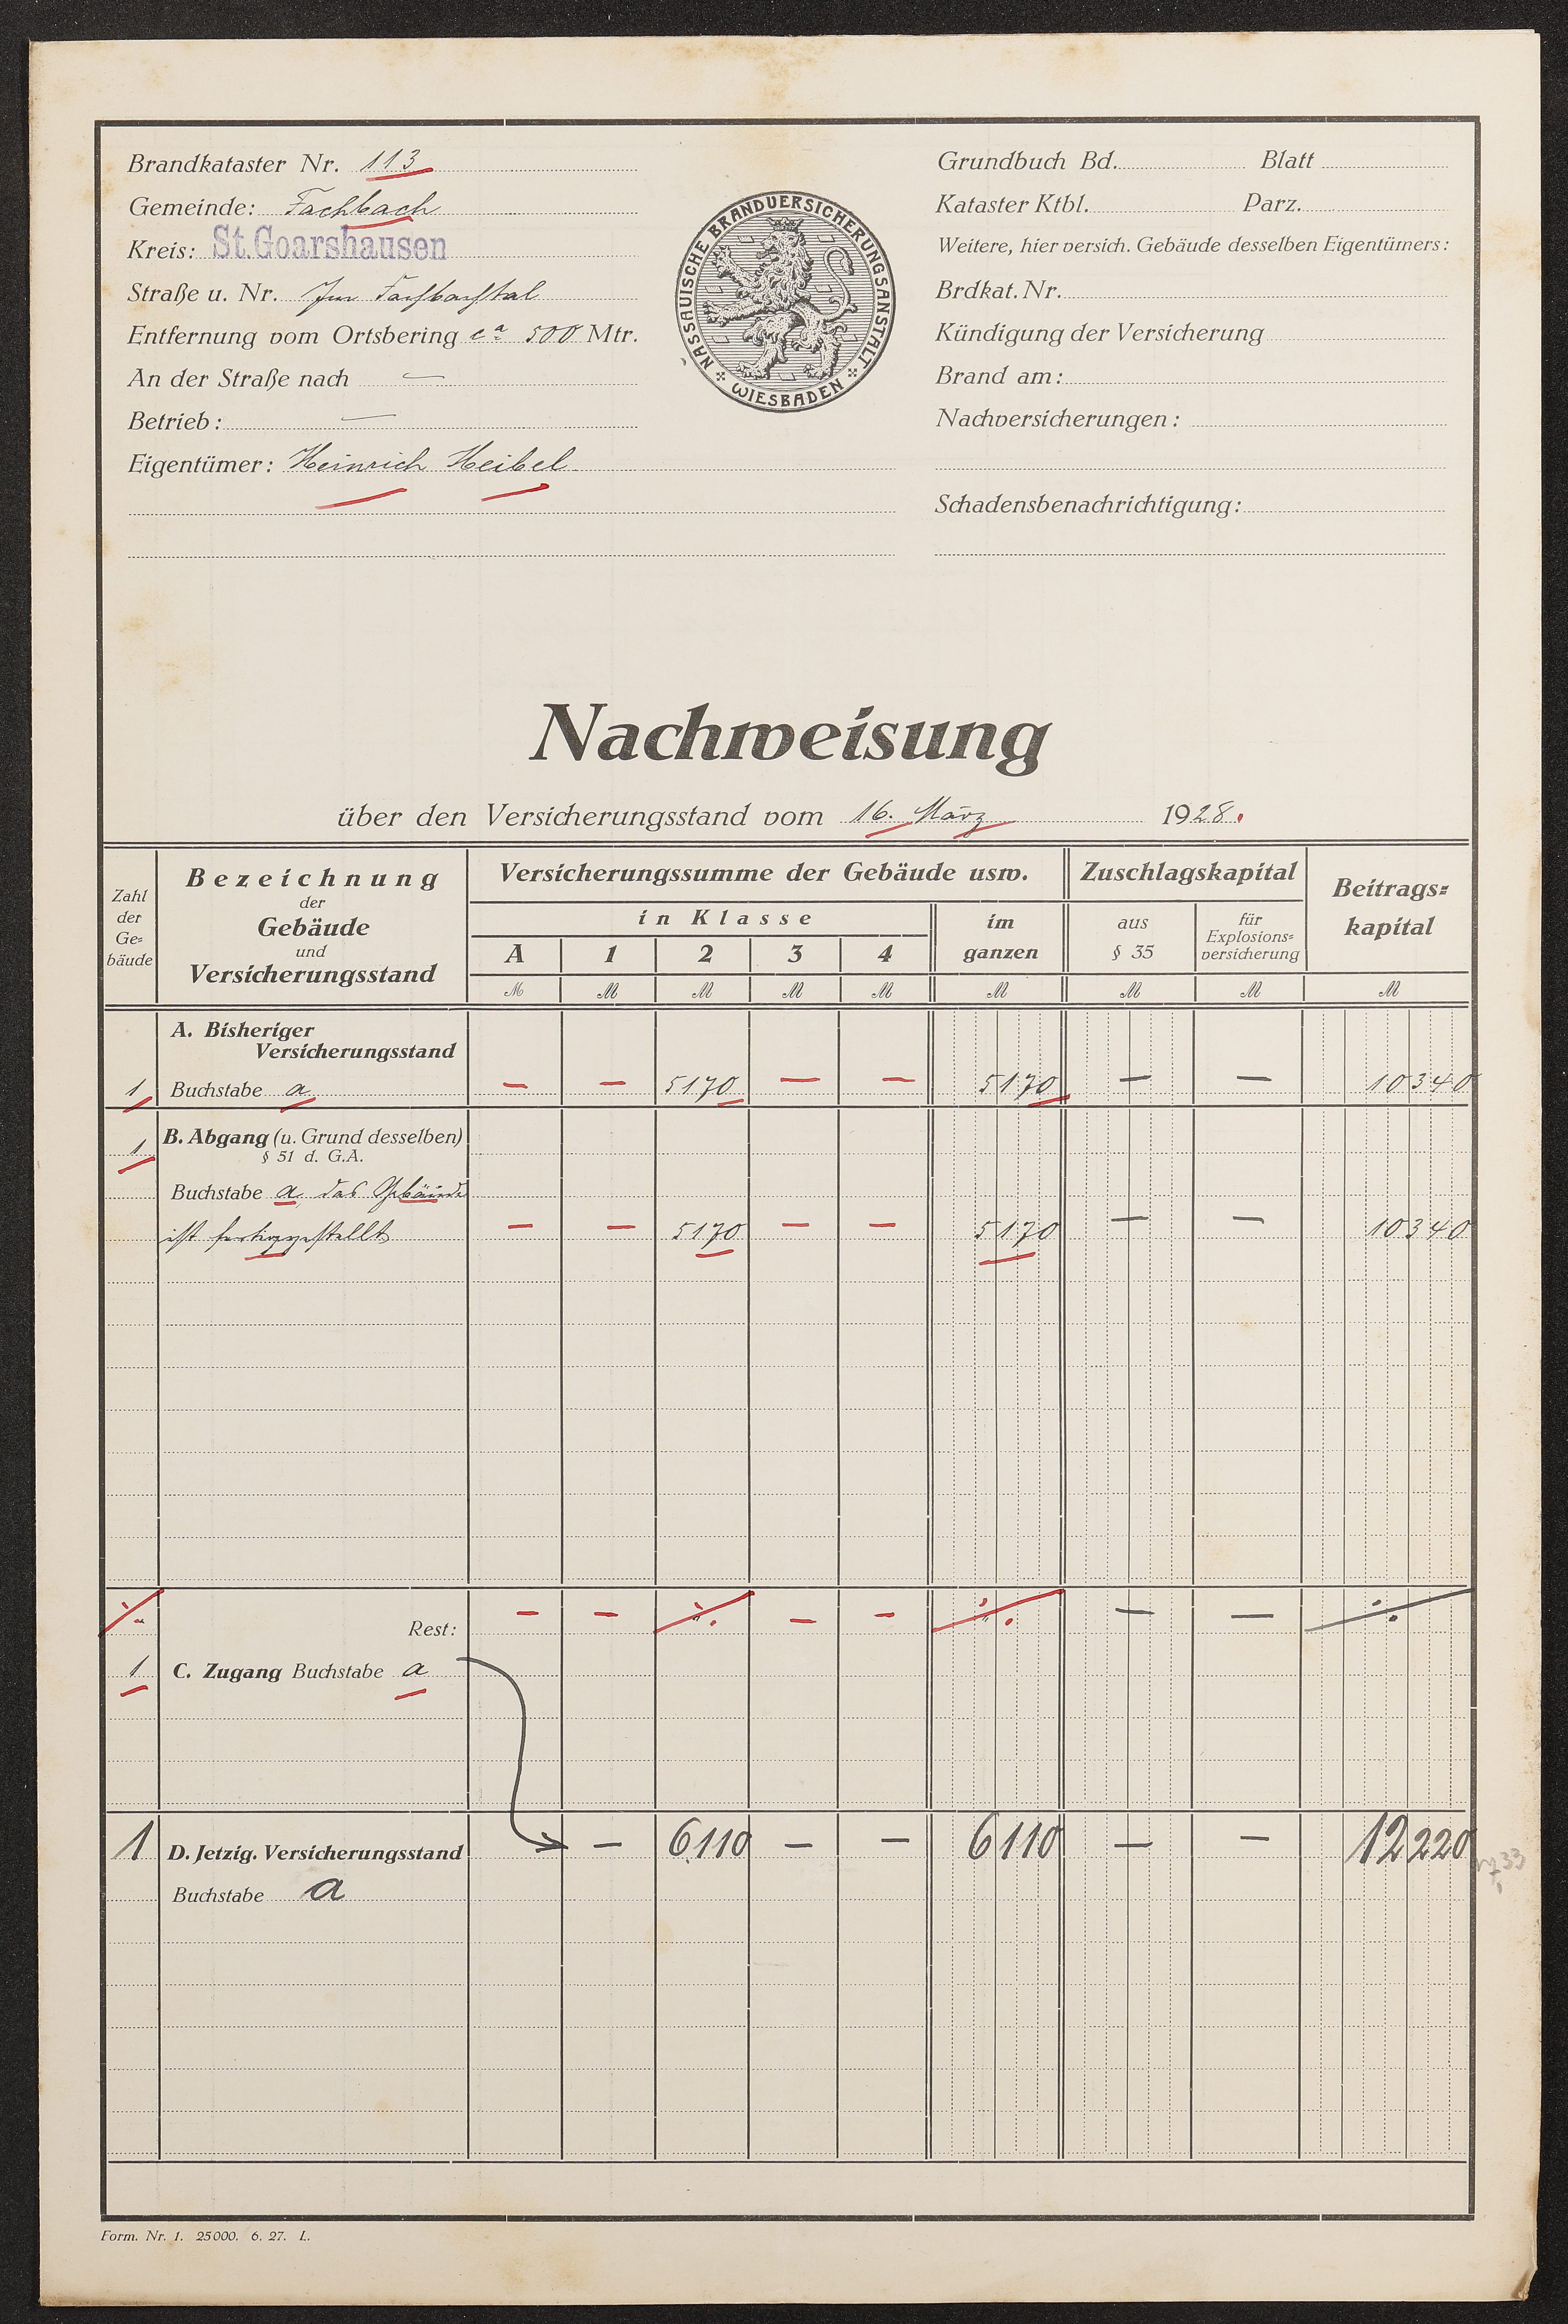 Brandkataster Nr. 113
Gemeinde: Fachbach
Kreis: St. Goarshausen
Straße u. Nr. Im Fachbachtal
Entfernung vom Ortsbering ca 500 Mtr.
An der Straße nach —
Betrieb: —
Eigentümer: Heinrich Heibel
NASSAUISCHE BRANDVERSICHERUNGSANSTALT
WIESBADEN
Grundbuch Bd. Blatt
Kataster Ktbl. Parz.
Weitere, hier versich. Gebäude desselben Eigentümers:
Brdkat. Nr.
Kündigung der Versicherung
Brand am:
Nachversicherungen:
Schadensbenachrichtigung:
Nachweisung
über den Versicherungsstand vom 16. März 1928.
Zahl der Ge=bäude
Bezeichnung der Gebäude und Versicherungsstand
Versicherungssumme der Gebäude usw.
in Klasse
A 1 2 3 4
im ganzen
Zuschlagskapital
aus § 35
für Explosions=versicherung
Beitrags=kapital
M M M M M M M M M
A. Bisheriger
Versicherungsstand
1 Buchstabe a — — 5170 — — 5170 — — 10340
1 B. Abgang (u. Grund desselben)
§ 51 d. G.A.
Buchstabe a, das Gebäude
ist fertiggestellt — — 5170 — — 5170 — — 10340
Rest: — — — — — —
1 C. Zugang Buchstabe a
1 D. Jetzig. Versicherungsstand — 6110 — — 6110 — — 12220
Buchstabe a
Form. Nr. 1. 25000. 6. 27. L.